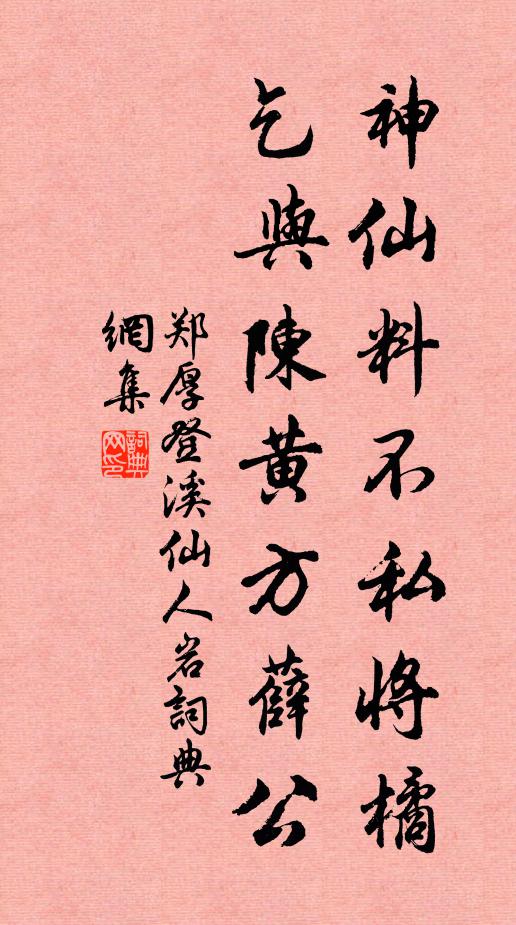 神仙料不私將橘
乞與陳黄方薛公
郑厚登溪仙人岩詞典
網集
詞典
网印